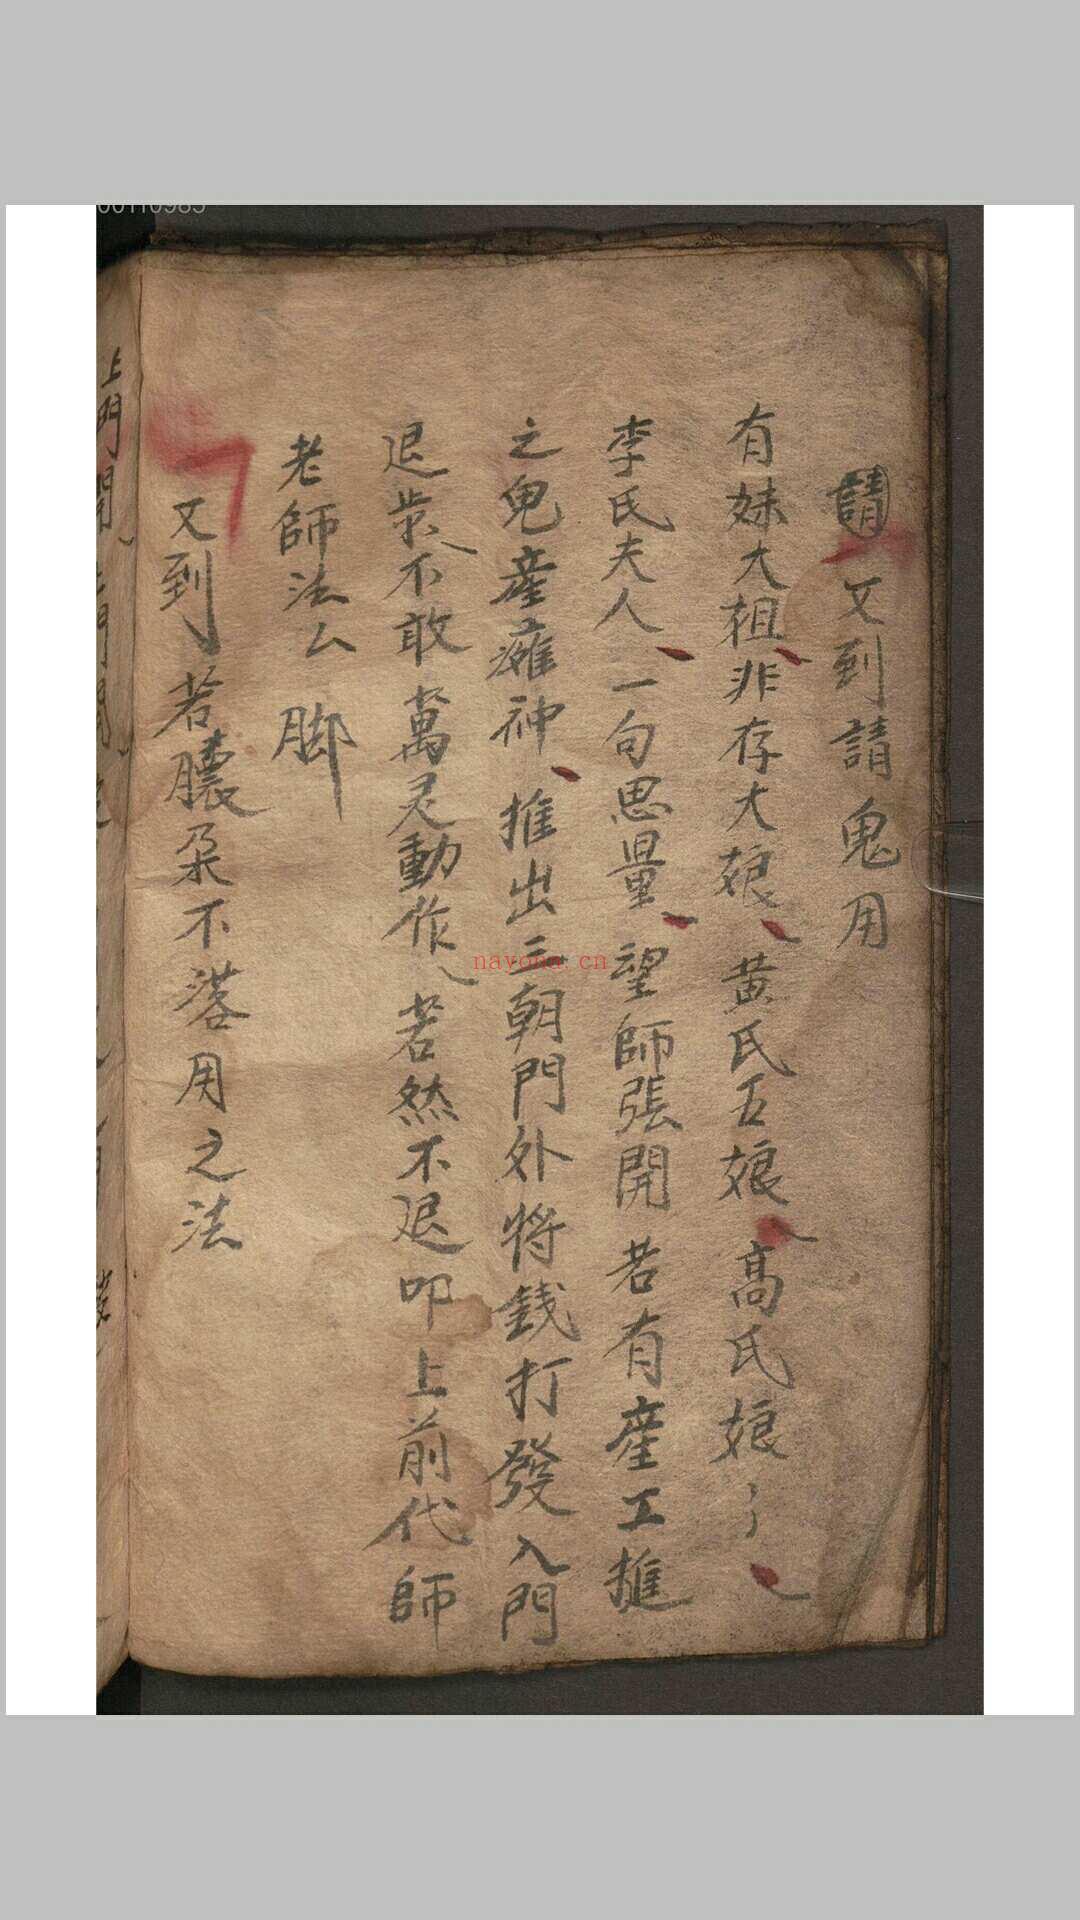 請又到請鬼用
有妹大祖非存大娘黃氏五娘高氏娘〻
李氏夫人一句思量望師張開若有產工推
之鬼產瘫神推出三朝門外将錢打發入門
退步不敢萬灵動作若然不退叩上前代師
老師法厶 脚
又到若膿朶不落用之法
上門開
nayona.cn